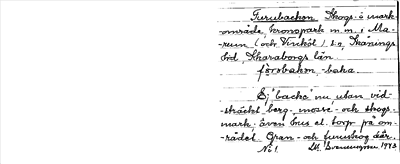 Furubacken, Skogs- o mark-
område, kronopark m.m. i Ma-
rum (och Vinköl) sn, Skånings
hd, Skaraborgs län.
fòrobakən, -baka.
Ej "backe" nu utan vid-
sträckt berg-, mosse- och skogs-
mark, även hus el. torp på om-
rådet. Gran- och furuskog där.
No 1. 1943